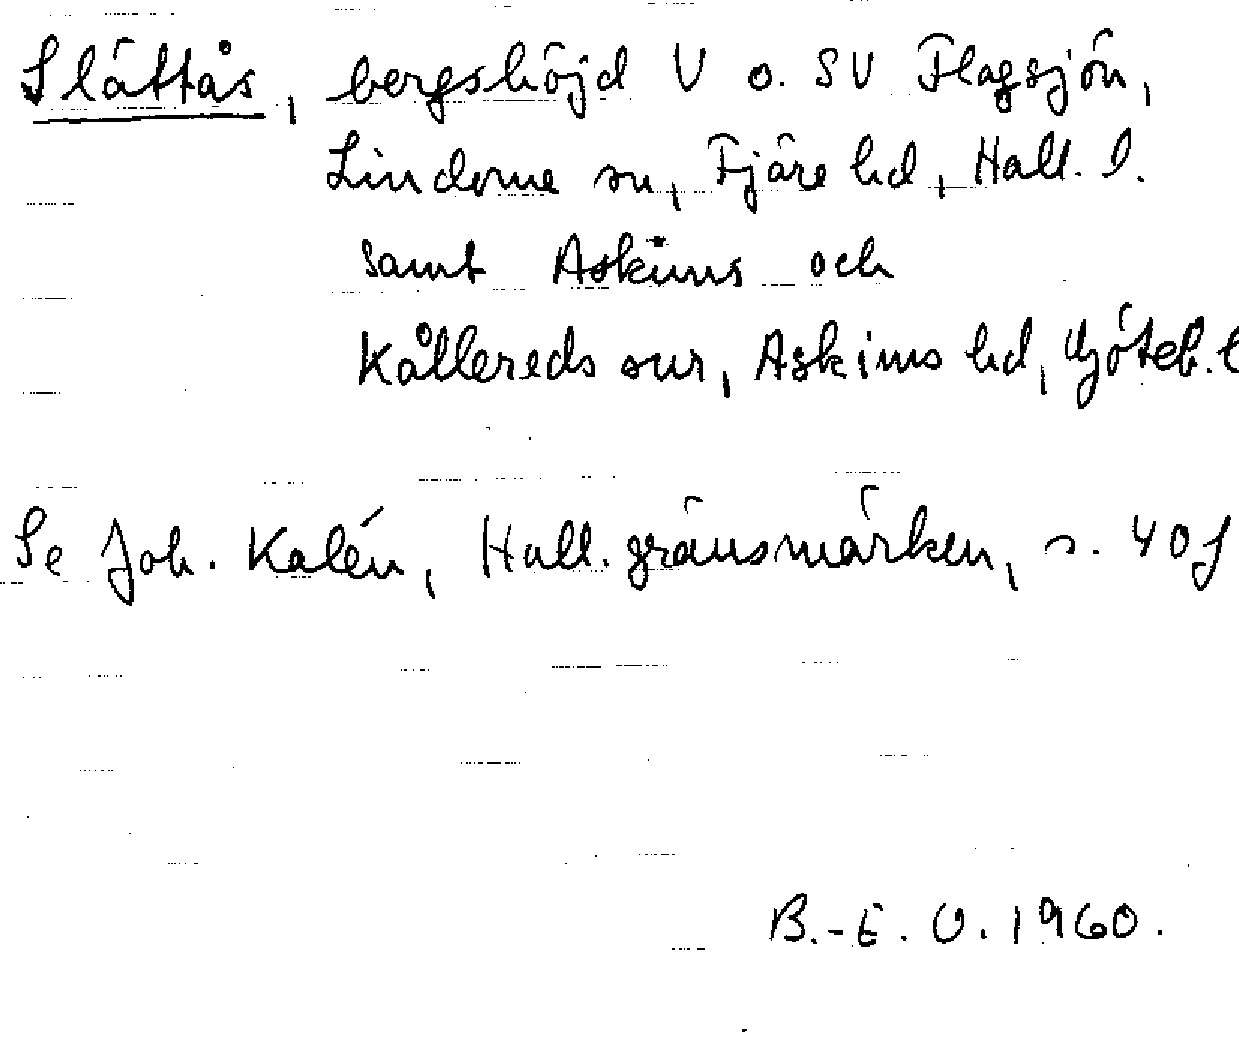 Slättås, bergshöjd V o. SV Flagsjön,
Lindome sn, Fjäre hd, Hall. l.
samt Askims och
Kållereds snr, Askims hd, Göteb. l
Se Joh. Kalén, Hall. gränsmärken, s. 40f
B.-E. O. 1960.